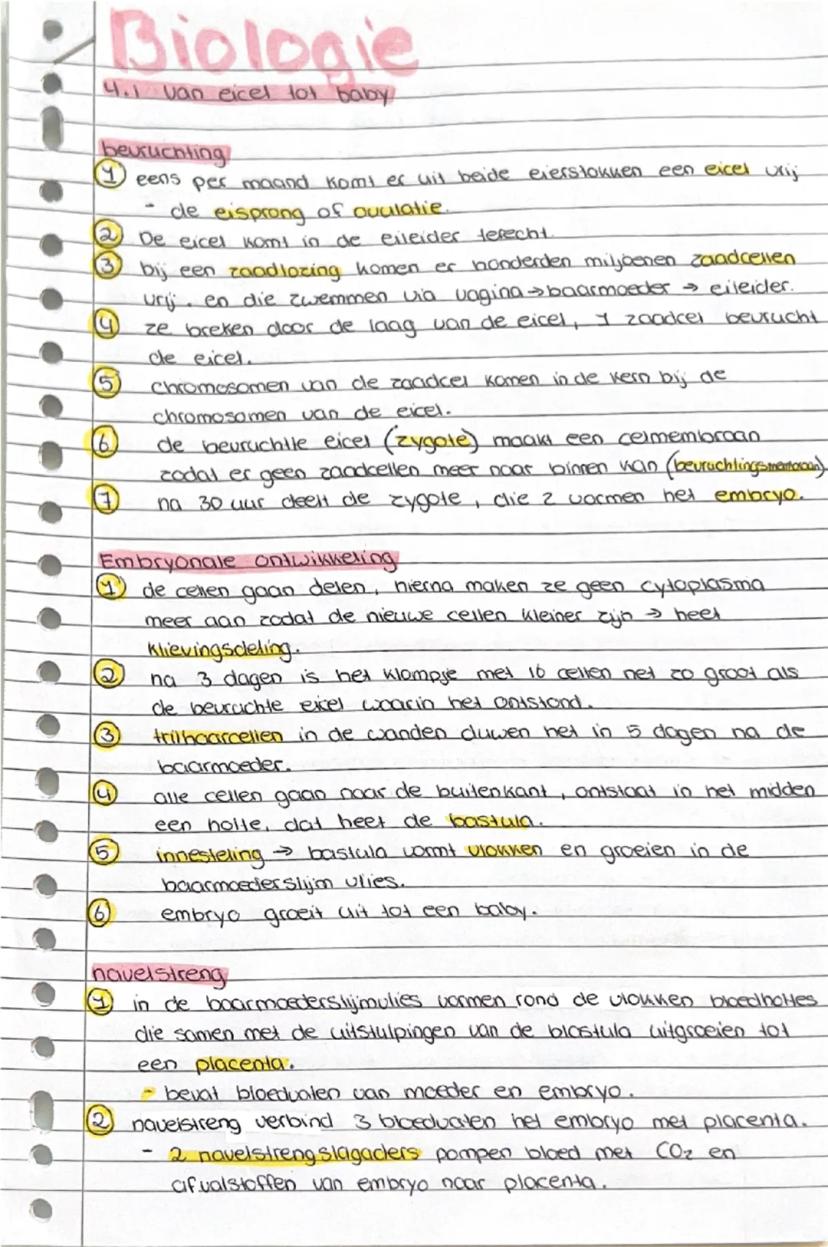 Biologie
4.1 van eicel tot baby
bevruchting
1 eens per maand komt er uit beide eierstokken een eicel vrij
- de eisprong of ovulatie.
2 De eicel komt in de eileider terecht.
3 bij een zaadlozing komen er honderden miljoenen zaadcellen
vrij. en die zwemmen via vagina → baarmoeder → eileider.
4 ze breken door de laag van de eicel, 1 zaadcel bevrucht
de eicel.
5 chromosomen van de zaadcel komen in de kern bij de
chromosomen van de eicel.
6 de bevruchtte eicel (zygote) maakt een celmembraan
zodat er geen zaadcellen meer naar binnen kan (bevruchtingsmembraan)
7 na 30 uur deelt de zygote, die 2 vormen het embryo.
Embryonale ontwikkeling
1 de cellen gaan delen, hierna maken ze geen cytoplasma
meer aan zodat de nieuwe cellen kleiner zijn → heet
klievingsdeling.
2 na 3 dagen is het klompje met 16 cellen net zo groot als
de bevruchte eicel waarin het ontstond.
3 trilhaarcellen in de wanden duwen het in 5 dagen na de
baarmoeder.
4 alle cellen gaan naar de buitenkant, ontstaat in het midden
een holte, dat heet de bastula.
5 innesteling → bastula vormt vlokken en groeien in de
baarmoederslijm vlies.
6 embryo groeit uit tot een baby.
navelstreng
1 in de baarmoederslijmvlies vormen rond de vlokken bloedholtes
die samen met de uitstulpingen van de blastula uitgroeien tot
een placenta.
- bevat bloedvaten van moeder en embryo.
2 navelstreng verbind 3 bloedvaten het embryo met placenta.
- 2 navelstrengslagaders pompen bloed met CO₂ en
afvalstoffen van embryo naar placenta.